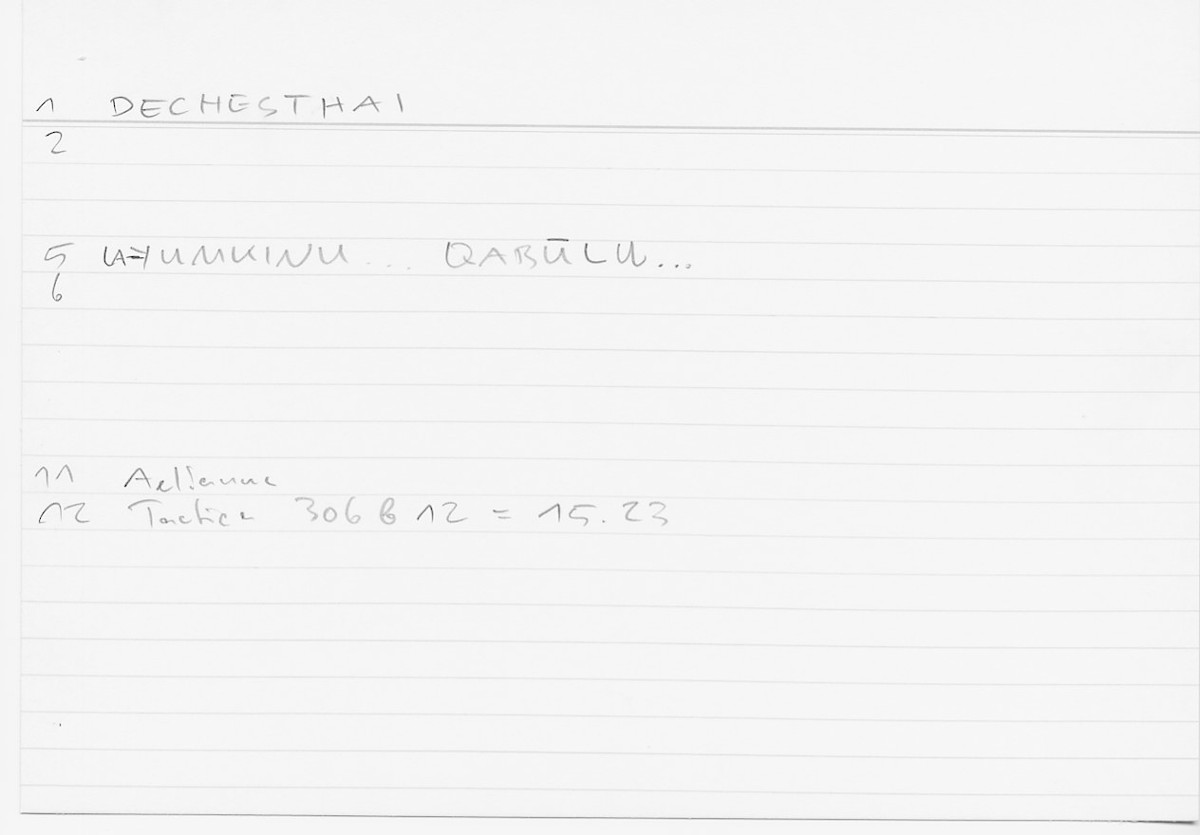 1 DECHESTHAI
2
5 YUMKINU ... QABŪLU...
6
11 Aelianus
12 Tactica 306 b 12 = 15.23